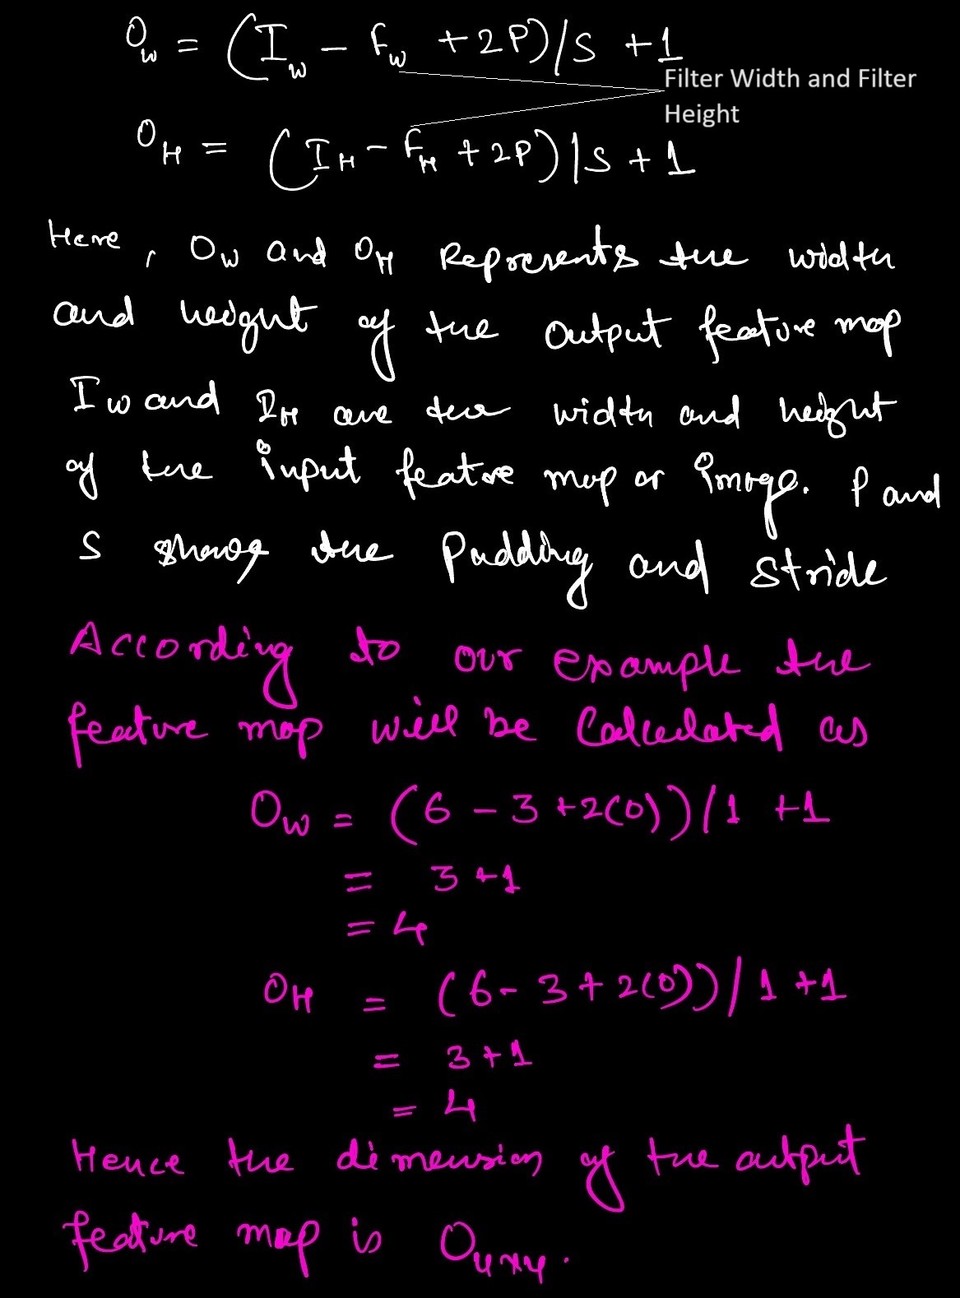 O_W = (I_W - F_W + 2P)/S + 1
Filter Width and Filter
Height
O_H = (I_H - F_H + 2P)/S + 1
Here, O_W and O_H Represents the width
and height of the output feature map
I_W and I_H are the width and height
of the input feature map or image. P and
S shows the Padding and Stride
According to our example the
feature map will be Calculated as
O_W = (6 - 3 + 2(0))/1 + 1
= 3 + 1
= 4
O_H = (6 - 3 + 2(0))/1 + 1
= 3 + 1
= 4
Hence the dimension of the output
feature map is O_4x4.